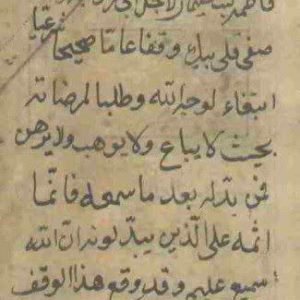 صفی قلی بیک وقفا عاما صحیحا شرعیا
ابتغاء لوجه الله وطلبا لمرضاته
بحیث لا یباع ولا یوهب ولا یرهن
فمن بدله بعد ما سمعه فانما
اثمه علی الذین یبدلونه ان الله
سمیع علیم وقد وقع هذا الوقف